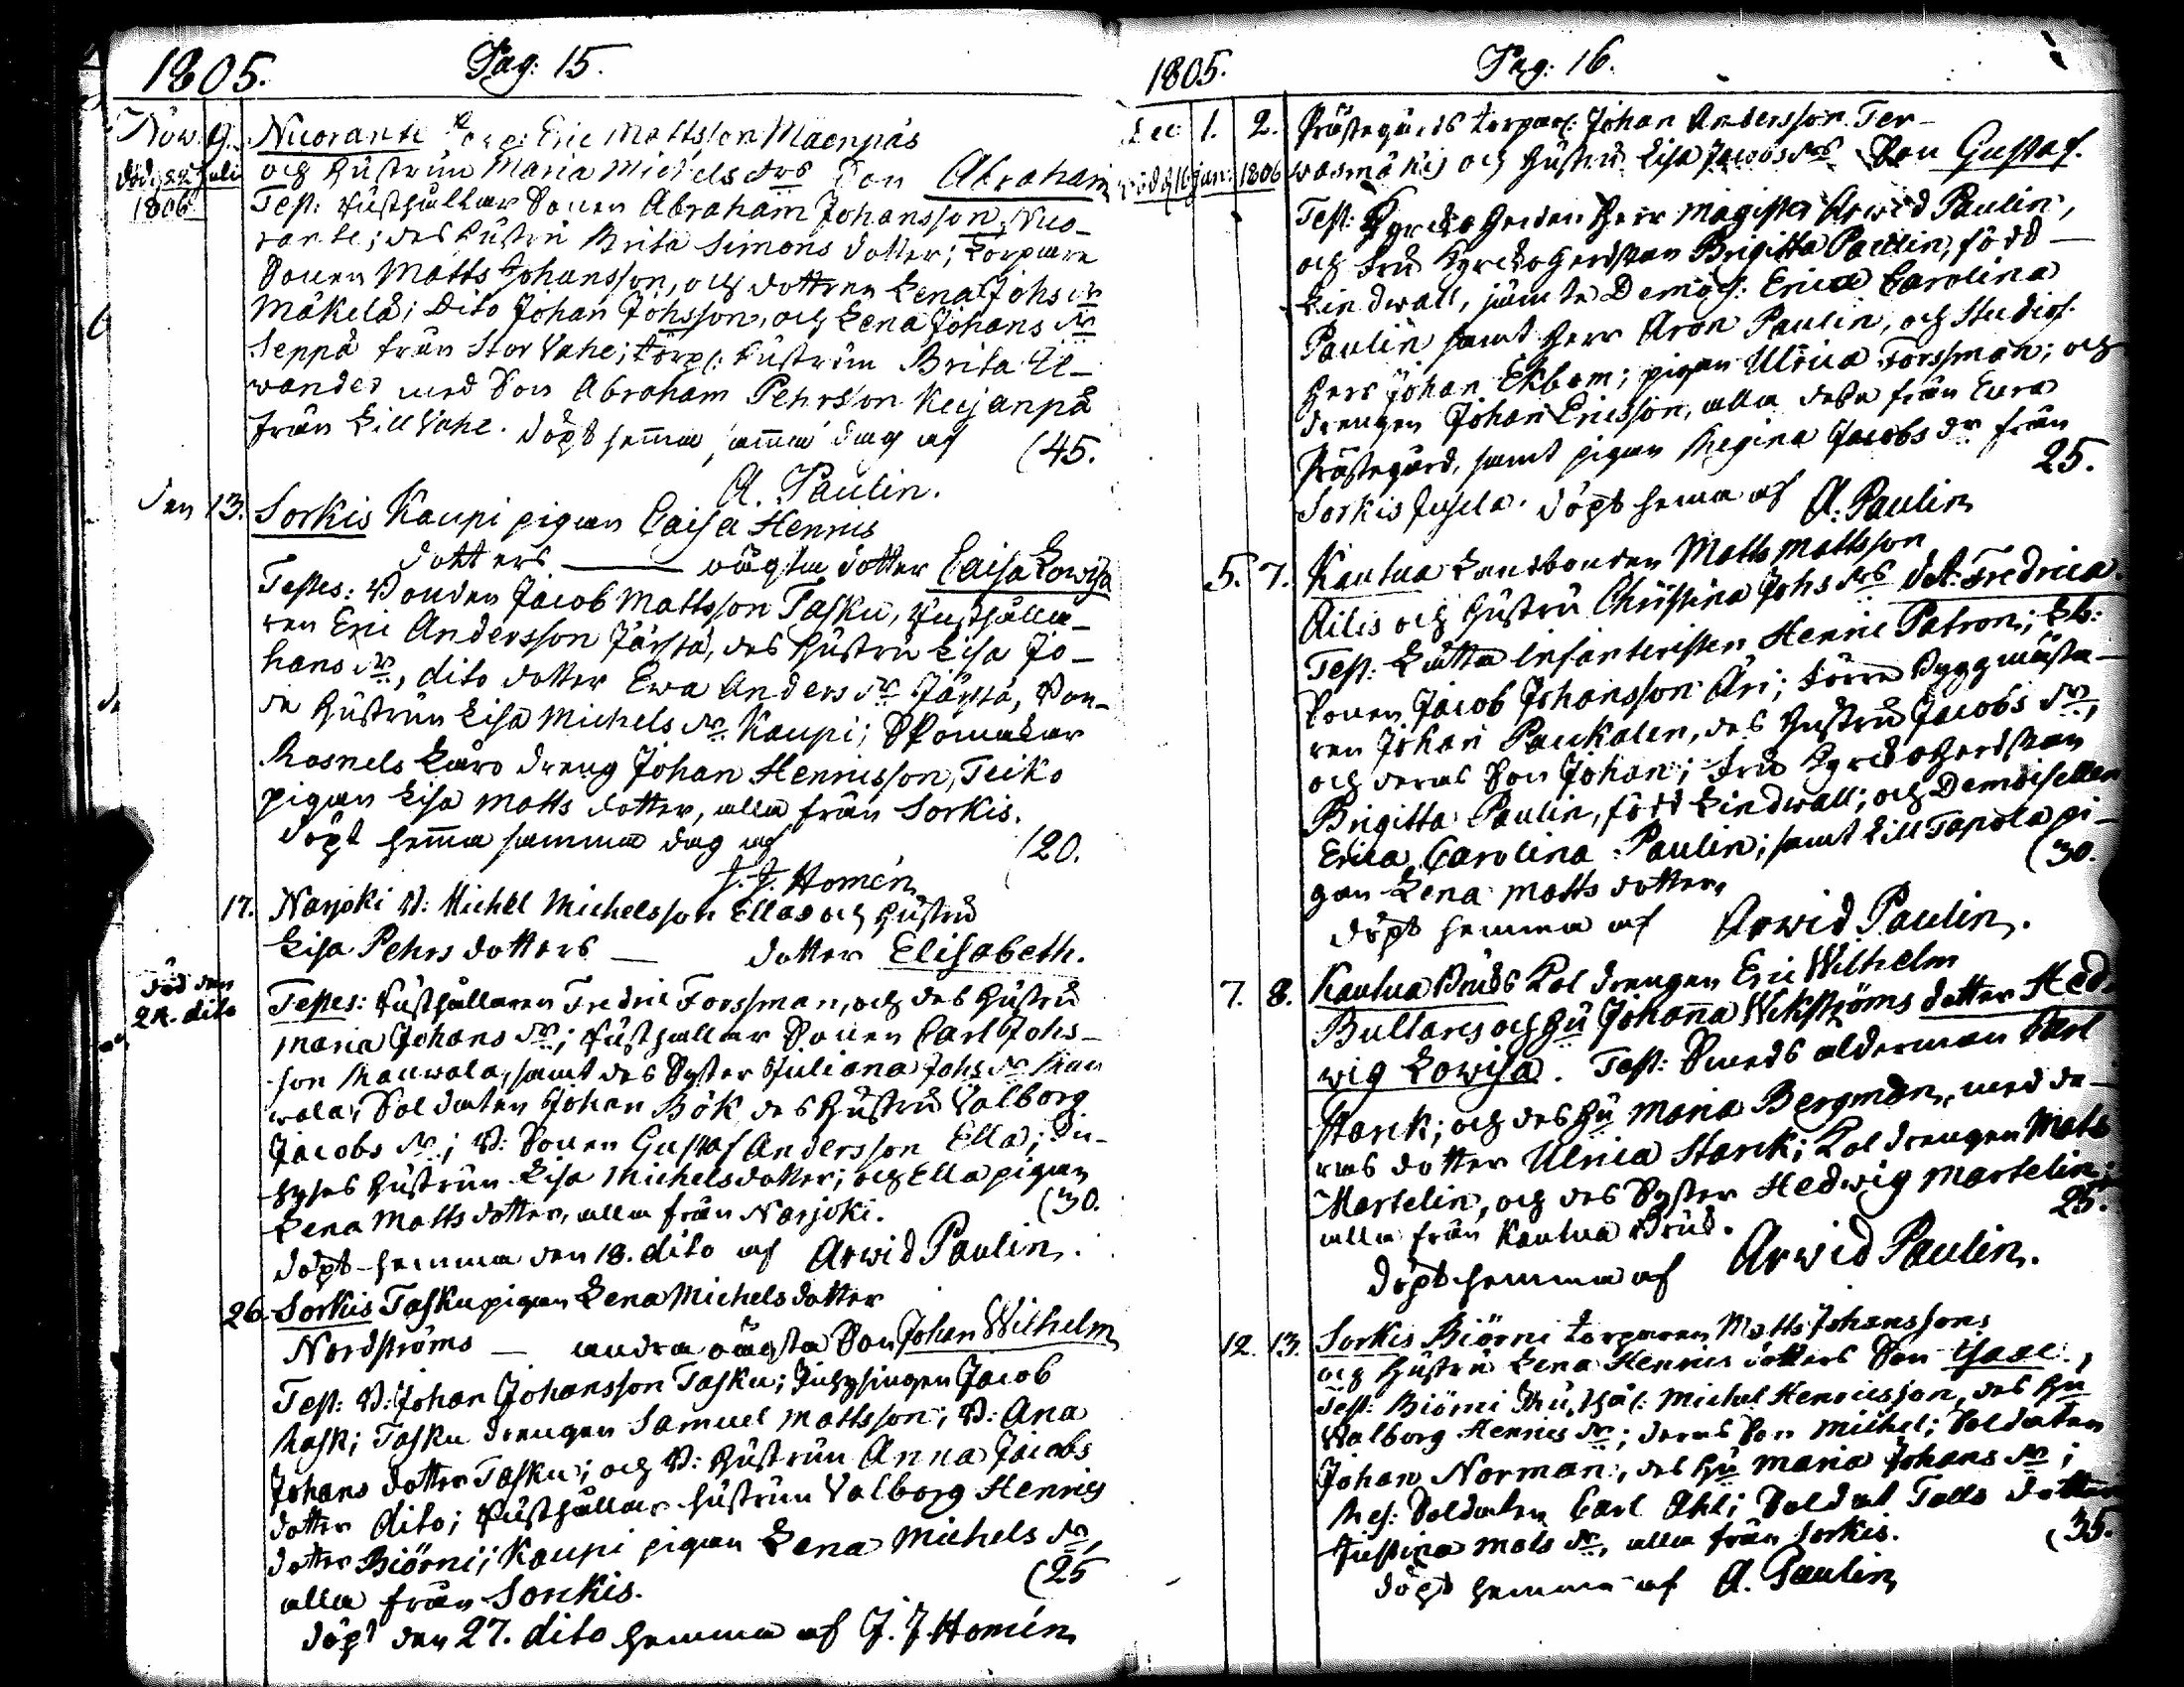 1805. Pag: 15.
Nov. 9. Nuorante Torp: Eric Mattsson Mäenpäs
död d 22 Juli 1806 och hustrun Maria Michelsdrs Son Abraham
Test: Rusthållar Sonen Abraham Johansson Nuo-
rante; des hustru Brita Simons dotter; torpare
Sonen Matts Johansson, och dottren Lena Johs dr
Mäkelä; Dito Johan Johsson, och Lena Johans dr
Seppä från Stor Vahe; torp: hustrun Brita
wander med Son Abraham Pehrsson Keijanpä
från Lill Vahe. döpt hema sama dag af (45.
A. Paulin.
den 13. Sorkis Kaupi pigan Caisa Henrics
dotters — oägta dotter Caisa Lowisa
Testes: Bonden Jacob Mattsson Tasku, Rusthålla-
ren Eric Andersson Järstä, des hustru Lisa Jo-
hans dr, dito dotter Ewa Anders dr Järstä, Bon-
de hustrun Lisa Michels dr Kaupi; Skomakar
Rosnels Läro dreng Johan Henricsson, Teiko
pigan Lisa Matts dotter, alla från Sorkis.
döpt hema samma dag af (20.
J. J. Homén
17. Narjoki B: Michel Michelsson Ellas och hustru
Lisa Pehrs dotters — dotter Elisabeth.
död den 24. dito
Testes: Rusthållaren Fredric Forssman, och des hustru
Maria Johans dr; Rusthållar Sonen Carl Johs-
son Mauwala, samt des Syster Juliana Johs dr Mau
wala; Soldaten Johan Bök des hustru Valborg
Jacobs dr; B: Sonen Gustaf Andersson Ella; In-
hyses hustrun Lisa Michelsdotter; och Ella pigan
Lena Matts dotter, alla från Narjoki. (30.
döpt hemma den 18. dito af Arwid Paulin.
26. Sorkis Tasku pigan Lena Michels dotter
Nordströms — andra oägta Son Johan Wilhelm
Test: B: Johan Johansson Tasku; Inhysingen Jacob
Rask; Tasku drengen Samuel Mattsson; B: Ana
Johans dotter Tasku; och B: hustrun Anna Jacobs
dotter dito; Rusthållar hustrun Valborg Henrics
dotter Biörni; Kaupi pigan Lena Michels dr,
alla från Sorkis. (25
döpt den 27. dito hemma af J. J. Homén
1805. Pag: 16.
Dec: 1. 2. Prästegårds torpar: Johan Andersson Ter-
död d 16 Jan: 1806 wasmäkis och hustru Lisa Jacobs drs Son Gustaf.
Test: Kyrckoherden Herr Magister Arwid Paulin,
och Fru Kyrckoherdskan Brigitta Paulin, född —
Lindwall, jämte Demois: Erica Carolina
Paulin samt Herr Aron Paulin, och Studios:
Herr Johan Ekbom; pigan Ulrica Forssman; och
drengen Johan Ericsson, alla desa från Eura
Prästegård, samt pigan Regina Jacobs dr från
Sorkis Jusela. döpt hema af 25.
A. Paulin
5. 7. Kautua Landbonden Matts Mattsson
Äilis och hustru Christina Johs drs dot: Fredrica.
Test: Lätta Infanteristen Henric Patron; Lb:
Sonen Jacob Johansson Äri; förre Byggmästa-
ren Johan Paukalen, des hustru Jacobs dr,
och deras Son Johan; Fru Kyrckoherdskan
Brigitta Paulin, född Lindwall; och Demoisellen
Erica Carolina Paulin; samt Lill Tapola pi-
gan Lena Matts dotter. (30.
döpt hemma af Arwid Paulin.
7. 8. Kautua Bruds Kol drengen Eric Wilhelm
Bullars och hu Johanna Wekströms dotter Hed-
wig Lowisa. Test: Smeds alderman Carl
Starck; och des hu Maria Bergman, med de-
ras dotter Ulrica Starck; Kol drengen Mats
Martelin, och des Syster Hedwig Martelin;
alla från Kautua Bruk. 25.
döpt hemma af Arwid Paulin.
12. 13. Sorkis Biörni torparen Matts Johanssons
och hustru Lena Henrics dotters Son Isaac.
Test: Biörni Rusthål: Michel Henricsson, des hu
Walborg Henrics dr; deras Son Michel; Soldaten
Johan Norman, des hu Maria Johans dr;
Res: Soldaten Carl Ahl; Soldat Talls dotter
Justina Mats dr, alla från Sorkis. (35.
döpt hemma af A. Paulin